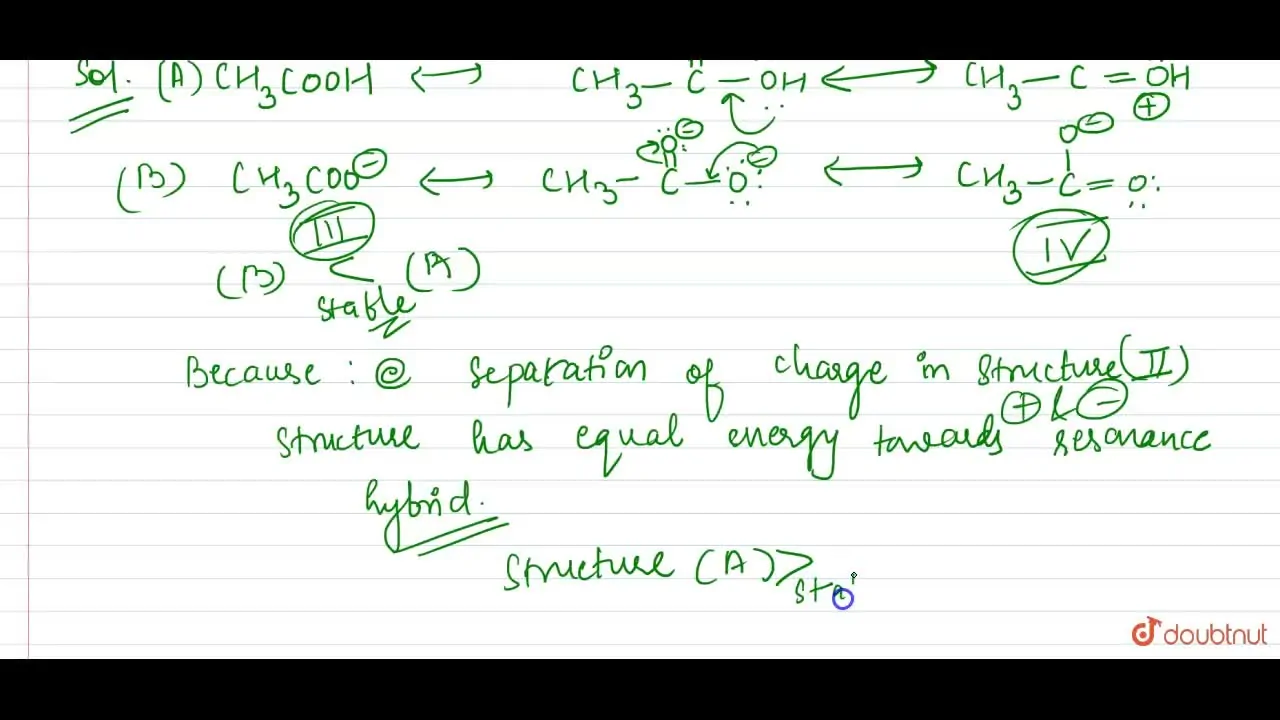 Sol. (A) CH3COOH ⟷ CH3 — C — OH ⟷ CH3 — C = OH
⊕
O ⊖ O ⊖
(B) CH3COO ⊖ ⟷ CH3 — C — O ⊖ ⟷ CH3 — C = O
III IV
(B) < (A)
stable
Because : @ separation of charge in structure (II)
⊕ & ⊖
structure has equal energy towards resonance
hybrid.
Structure (A) >
sta
doubtnut